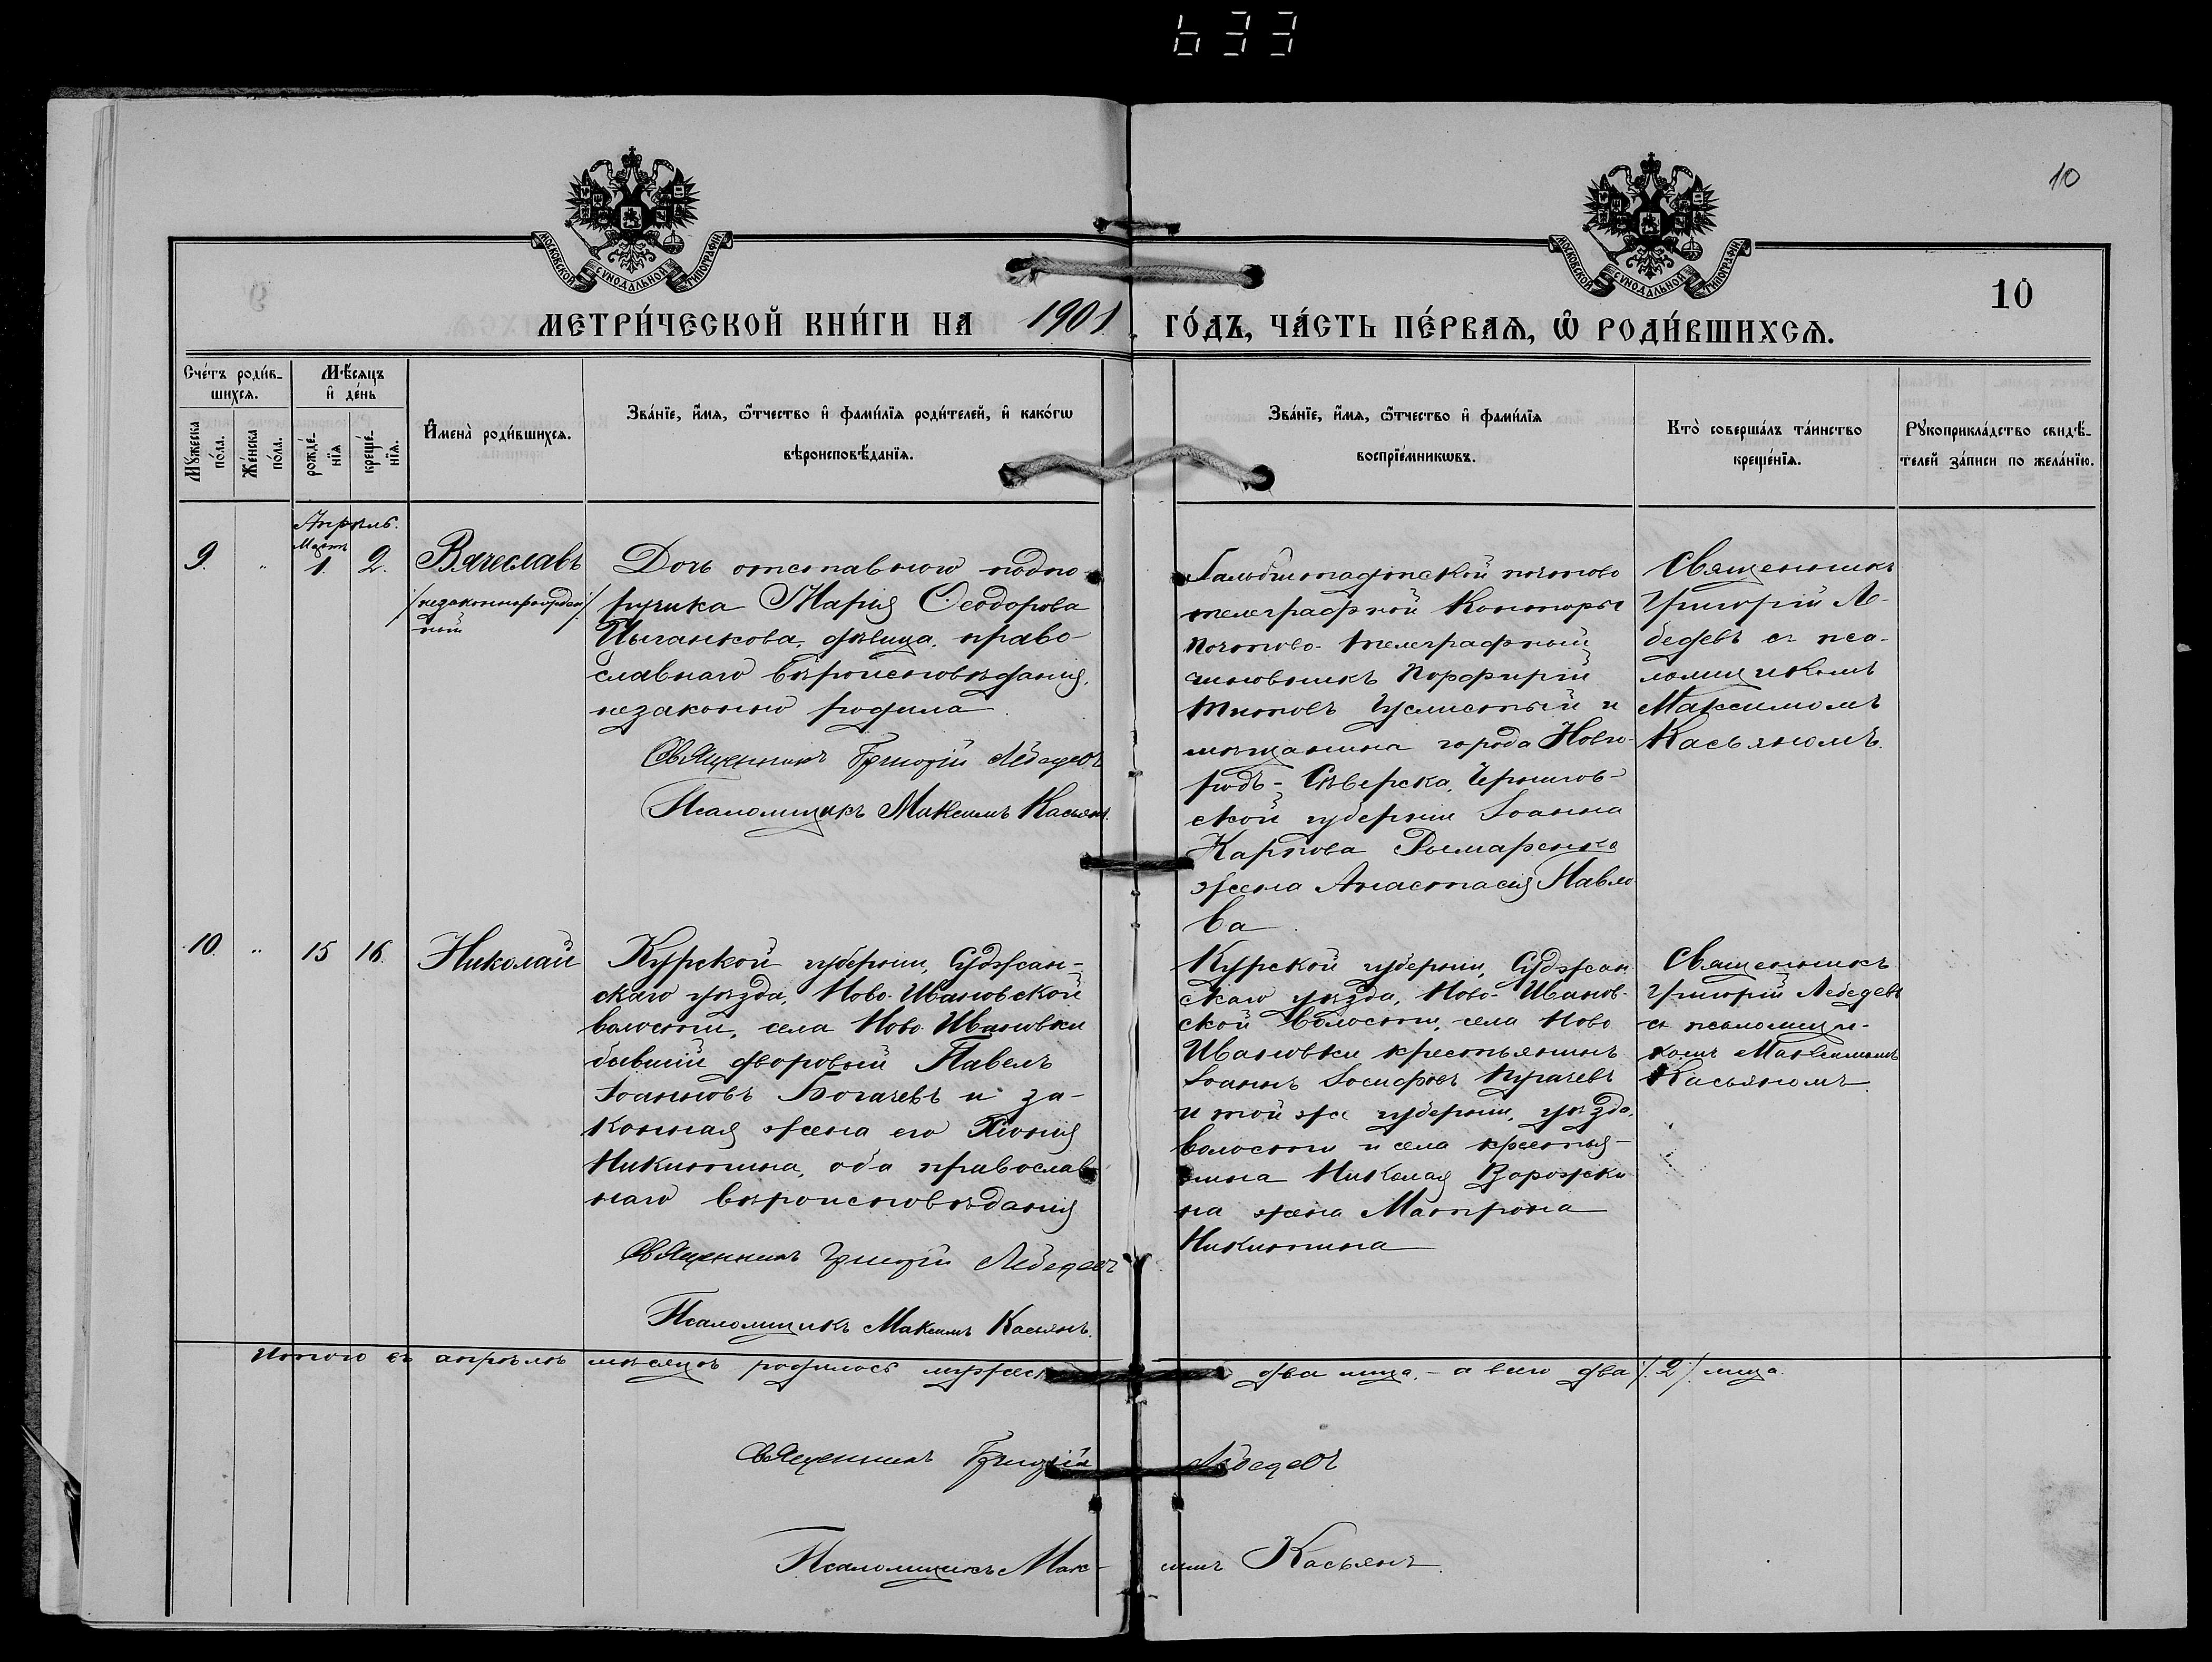 633
10
МОСКОВСКОЙ СѴНОДАЛЬНОЙ ТИПОГРАФІИ
МОСКОВСКОЙ СѴНОДАЛЬНОЙ ТИПОГРАФІИ
10
МЕТРИ́ЧЕСКОЙ КНИ́ГИ НА 1901 ГО́ДЪ, ЧА́СТЬ ПЕ́РВАѦ, Ѽ РОДИ́ВШИХСѦ.
Сче́тъ роди́в-
шихся.
Мѣ́сяцъ
и҆ де́нь
Мꙋ́жеска
по́ла.
Же́нска
по́ла.
рожде́-
нїя
креще́-
нїя.
И҆мена̀ роди́вшихся.
Зва́нїе, и҆́мя, ѻ҆́тчество и҆ фами́лїя роди́телей, и҆ како́гѡ
вѣроисповѣ́данїя.
Зва́нїе, и҆́мя, ѻ҆́тчество и҆ фами́лїя
воспрїе́мникѡвъ.
Кто̀ соверша́лъ та́инство
креще́нїя.
Рꙋкоприкла́дство свидѣ́-
телей за́писи по жела́нїю.
Апрѣль.
Мартъ
9. " 1. 2. Вячеславъ
/незаконнорожден/
ный
Дочь отставного подпо
ручика Марія Ѳеодорова
Цыганкова, дѣвица, право
славнаго вѣроисповѣданія,
незаконно родила
Священникъ Григорій Лебедевъ
Псаломщикъ Максимъ Касьянъ.
Гальбштадтской почтово
телеграфной Конторы
почтово-телеграфный
чиновникъ Порфирій
Титовъ Гуслистый и
мѣщанина города Новго-
родъ-Сѣверска, Чернигов-
ской губерніи Іоанна
Карпова Рымаренка
жена Анастасія Павло
ва
Священникъ
Григорій Ле-
бедевъ съ пса-
ломщикомъ
Максимомъ
Касьяномъ.
10. " 15 16 Николай
Курской губерніи, Суджан-
скаго уѣзда, Ново-Ивановской
волости, села Ново-Ивановки
бывшій дворовый Павелъ
Іоанновъ Богачевъ и за-
конная жена его
Никитина, оба православ
наго вѣроисповѣданія
Священникъ Григорій Лебедевъ
Псаломщикъ Максимъ Касьянъ.
Курской губерніи, Суджан
скаго уѣзда, Ново-Иванов-
ской волости, села Ново
Ивановки крестьянинъ
Іоаннъ Іосифовъ Пугачевъ
и той же губерніи, уѣзда,
волости и села крестья-
нина Николая Ворожки
на жена Матрона
Никитина
Священникъ
Григорій Лебедевъ
съ псаломщи-
комъ Максимомъ
Касьяномъ.
Итого въ апрѣлѣ мѣсяцѣ родилось мужеск два лица, - а всего два /2/ лица.
Священникъ Григорій Лебедевъ
Псаломщикъ Мак- симъ Касьянъ.